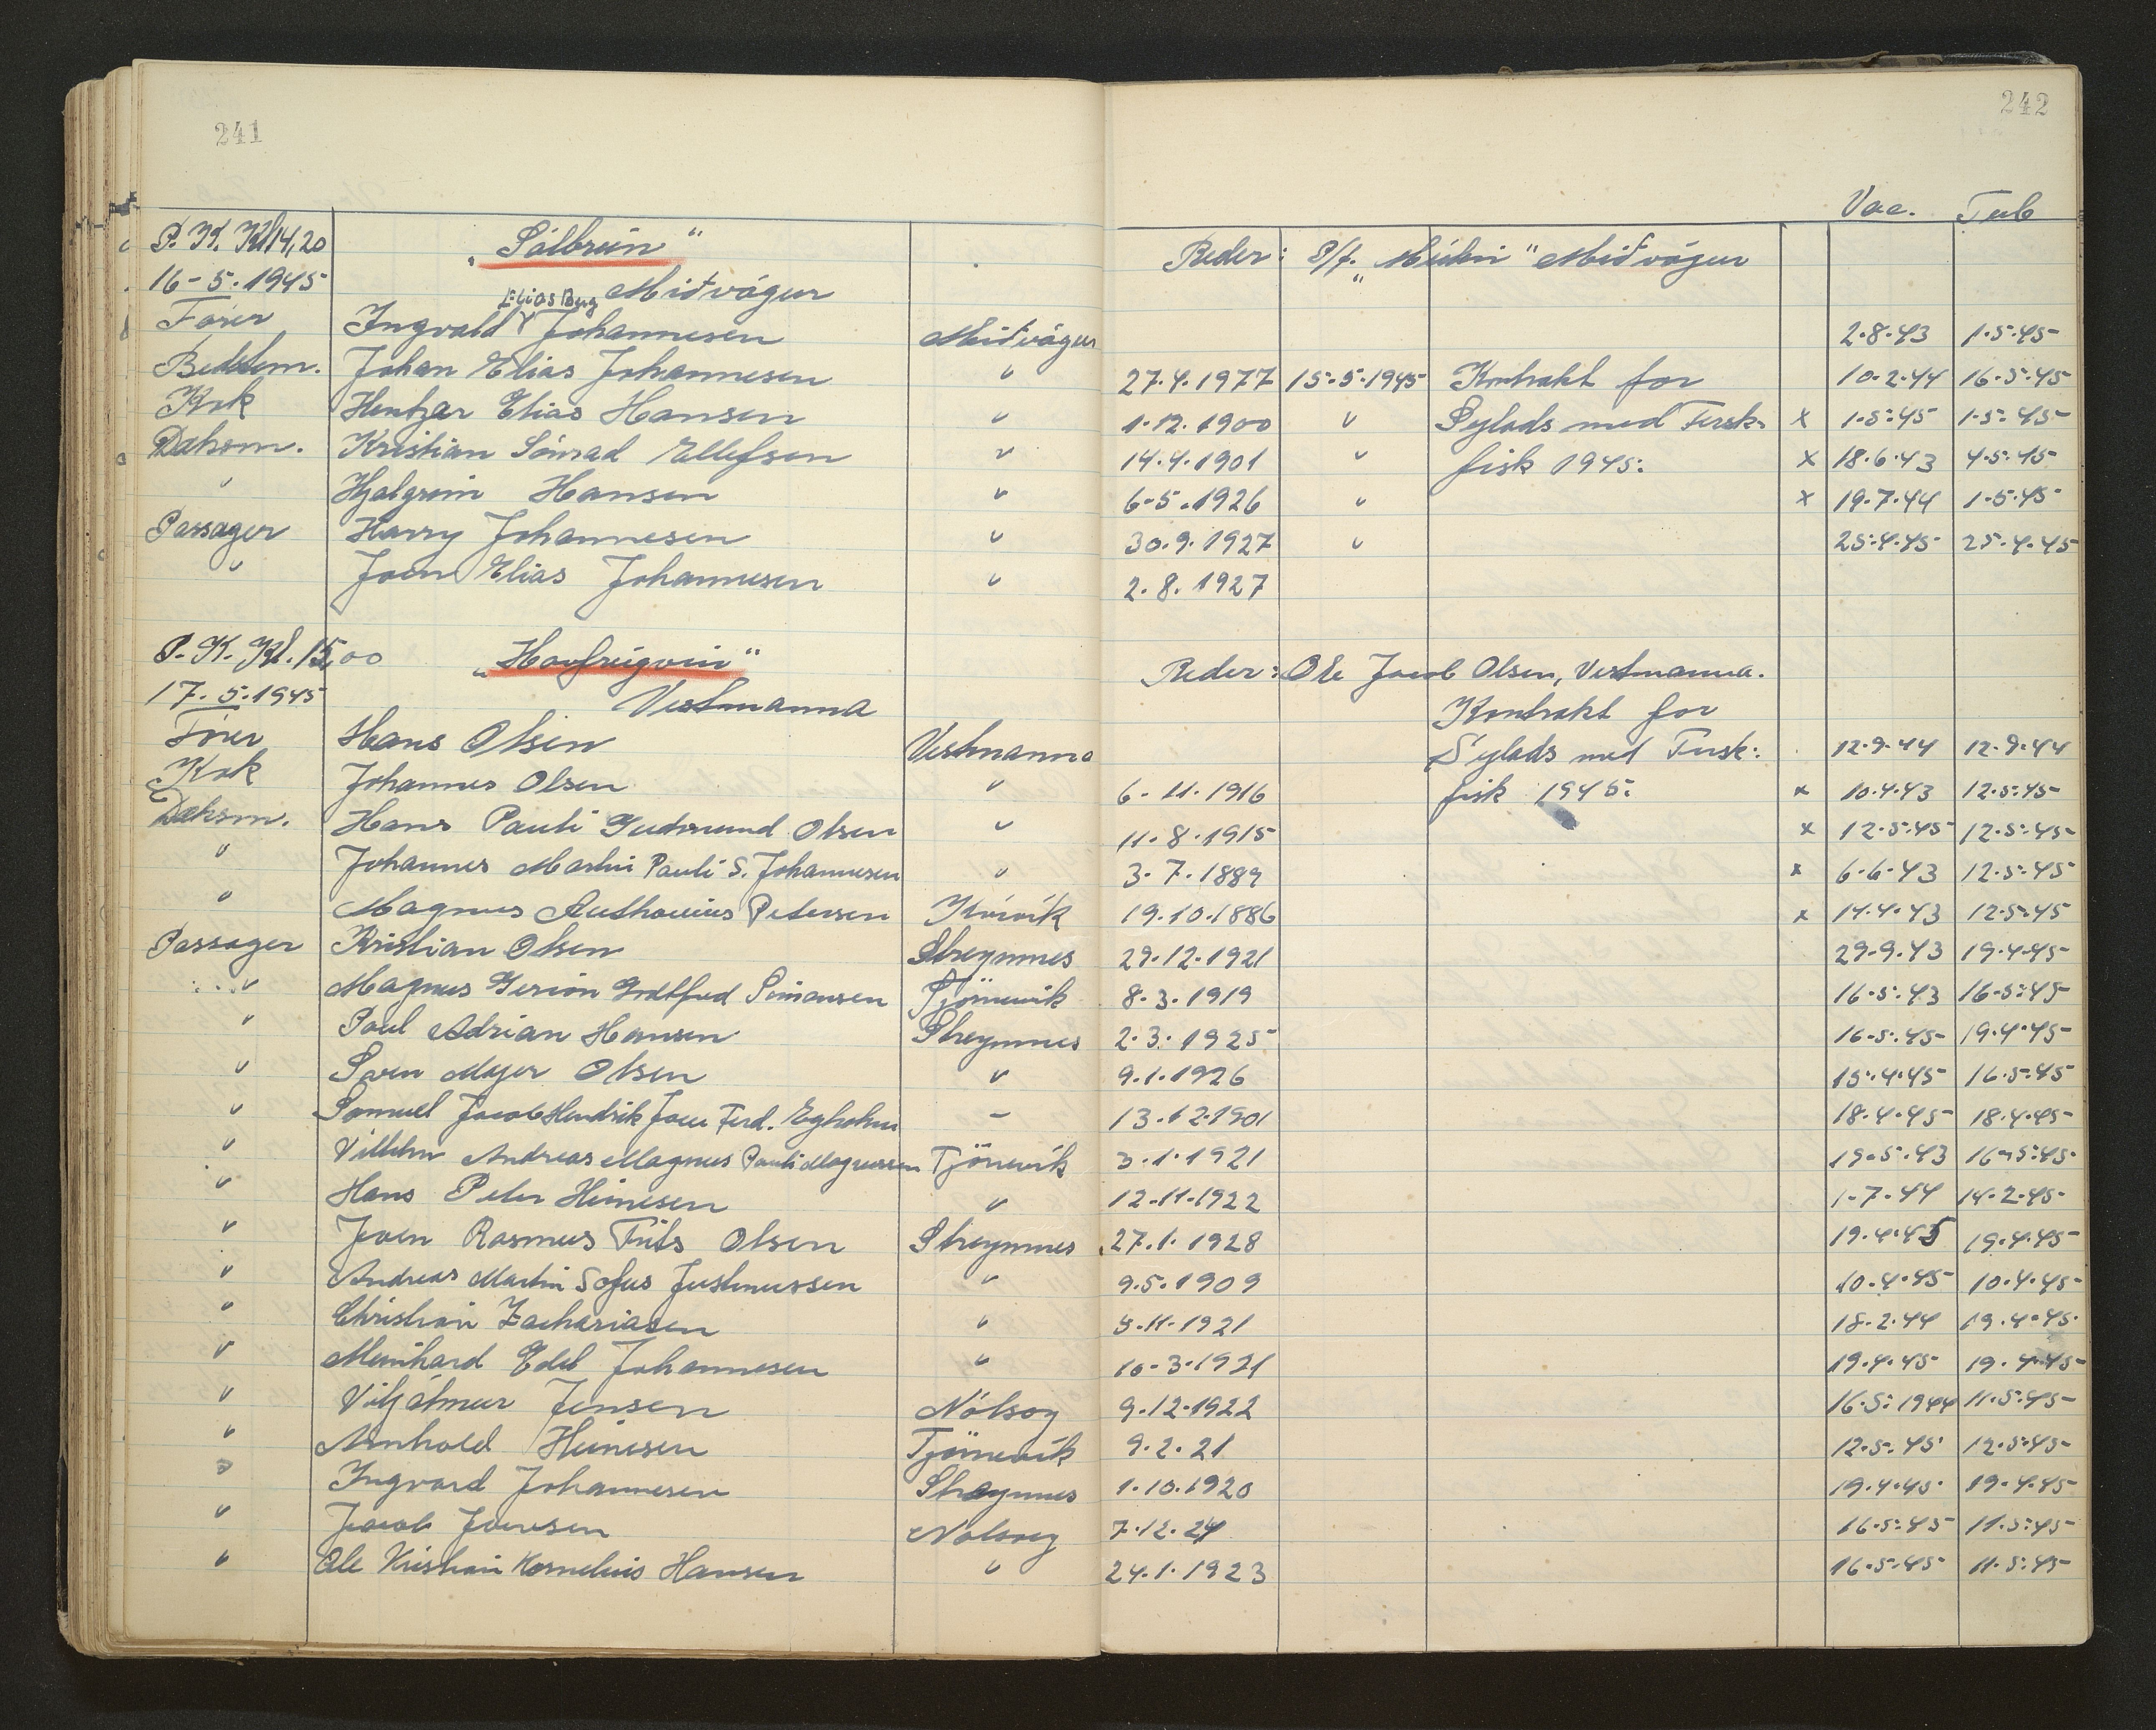 241
242
Vac. Tub
P.K. Kl 14,20 „Sólbrún“ Reder: P/f. „Múlin“ Miðvágur
16-5.1945 Miðvágur
Elias Berg
Fører Ingvald Johannesen Miðvágur 2.8.43 1.5.45
Bedstem. Johan Elias Johannesen " 27.4.1977 15.5.1945 Kontrakt for 10.2.44 16.5.45
Kok Hentzar Elias Hansen " 1.12.1900 " Sejlads med Fersk- x 1.5.45 1.5.45
Dæksm. Kristian Konrad Ellefsen " 14.4.1901 " fisk 1945: x 18.6.43 4.5.45
" Hjalgrim Hansen " 6.5.1926 " x 19.7.44 1.5.45
Passager Harry Johannesen " 30.9.1927 " 25.4.45 25.4.45
" Joen Elias Johannesen " 2.8.1927
P.K. Kl. 15,00 „Havfrúgvin“ Reder: Ole Jacob Olsen, Vestmanna.
17.5.1945 Vestmanna Kontrakt for
Fører Hans Olsen Vestmanna Sejlads med Fersk: 12.9.44 12.9.44
Kok Johannes Olsen " 6-11.1916 fisk 1945: x 10.4.43 12.5.45
Dæksm. Hans Pauli Gudmund Olsen " 11.8.1915 x 12.5.45 12.5.45
" Johannes Martin Pauli S. Johannesen " 3.7.1889 x 6.6.43 12.5.45
" Magnus Anthonius Petersen Kvívík 19.10.1886 x 14.4.43 12.5.45
Passager Kristian Olsen Streymnes 29.12.1921 29.9.43 19.4.45
" Magnus Gerion Godtfred Simonsen Tjörnuvík 8.3.1919 16.5.43 16.5.45
" Poul Adrian Hansen Streymnes 2.3.1925 16.5.45 19.4.45
" Sven Mejer Olsen " 9.1.1926 15.4.45 16.5.45
" Samuel Jacob Hendrik Joen Ferd. Egholm - 13.12.1901 18.4.45 18.4.45
" Vilhelm Andreas Magnus Pauli Magnussen Tjörnuvík 3.1.1921 19.5.43 16.5.45
" Hans Peter Heinesen " 12.11.1922 1.7.44 14.2.45
" Joen Rasmus Frits Olsen Streymnes 27.1.1928 19.4.45 19.4.45
" Andreas Martin Sofus Justinussen " 9.5.1909 10.4.45 10.4.45
" Christian Zachariasen " 3.11.1921 18.2.44 19.4.45
" Meinhard Edel Johannesen " 10.3.1921 19.4.45 19.4.45
" Viljálmur Jensen Nólsoy 9.12.1922 16.5.1944 11.5.45
" Arnhold Heinesen Tjörnuvík 9.2.21 12.5.45 12.5.45
" Ingvard Johannesen Streymnes 1.10.1920 19.4.45 19.4.45
" Jacob Joensen Nolsoy 7.12.24 16.5.45 11.5.45
" Ole Kristian Kornelius Hansen " 24.1.1923 16.5.45 11.5.45